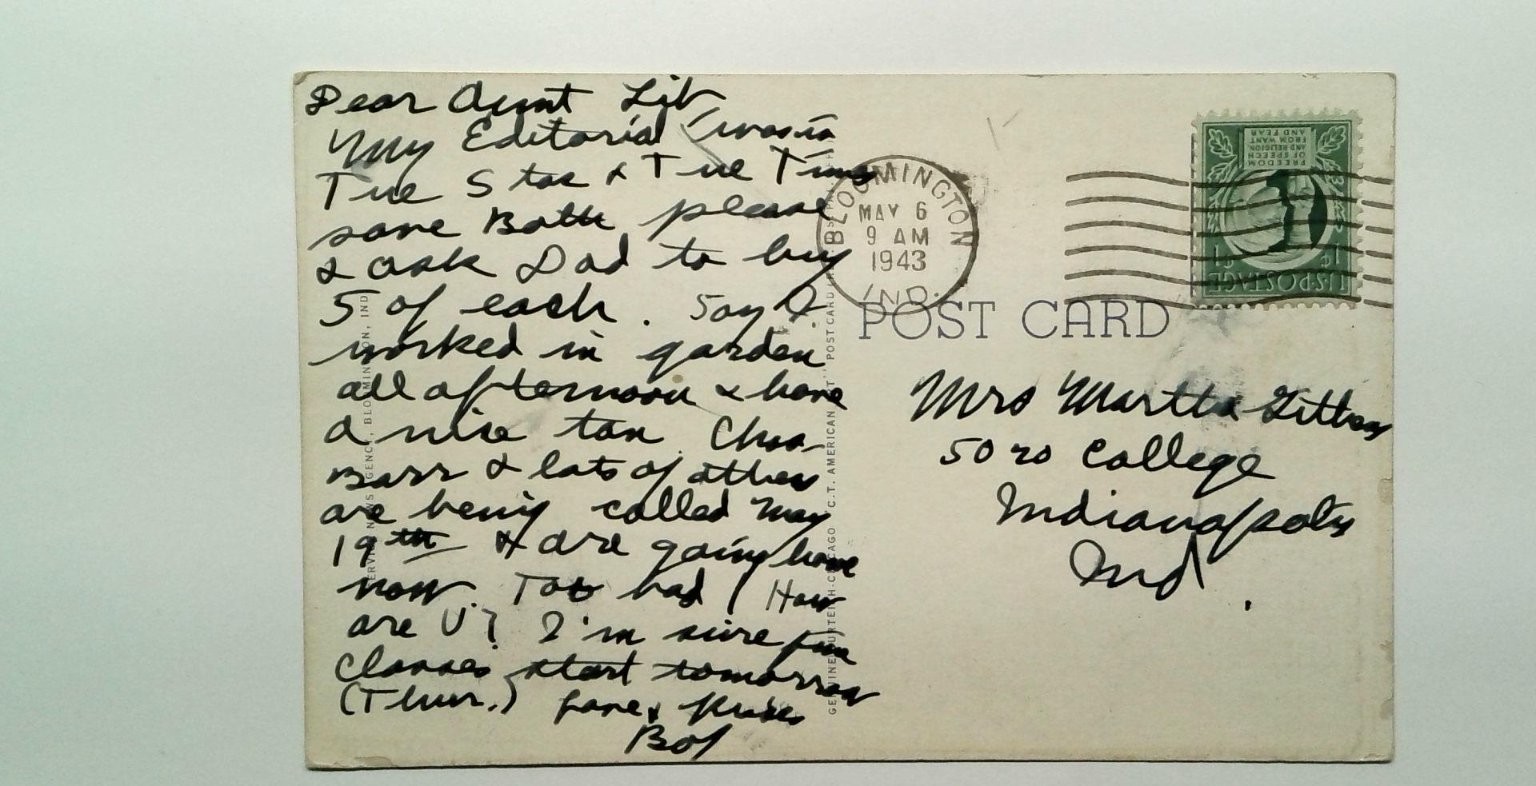 Dear Aunt Lib
My Editorial was in
Tue Star & Tue Times
save Both please
& ask Dad to buy
5 of each. Say I
worked in garden
all afternoon & have
a nice tan. Chas
Barr & lots of others
are being called May
19th & are going home
now Too bad! How
are U? I'm sure fine
Classes start tomorrow
(Thur.) Love & kisses
Bob
BLOOMINGTON
MAY 6
9 AM
1943
IND.
FREEDOM
OF SPEECH
AND RELIGION,
FROM WANT
AND FEAR
1¢ 1¢
U.S. POSTAGE
POST CARD
Mrs Martha
5020 College
Indianapolis
Ind.
NEWS AGENCY, BLOOMINGTON, IND
GENUINE CURTEICH-CHICAGO "C.T. AMERICAN ART" POST CARD